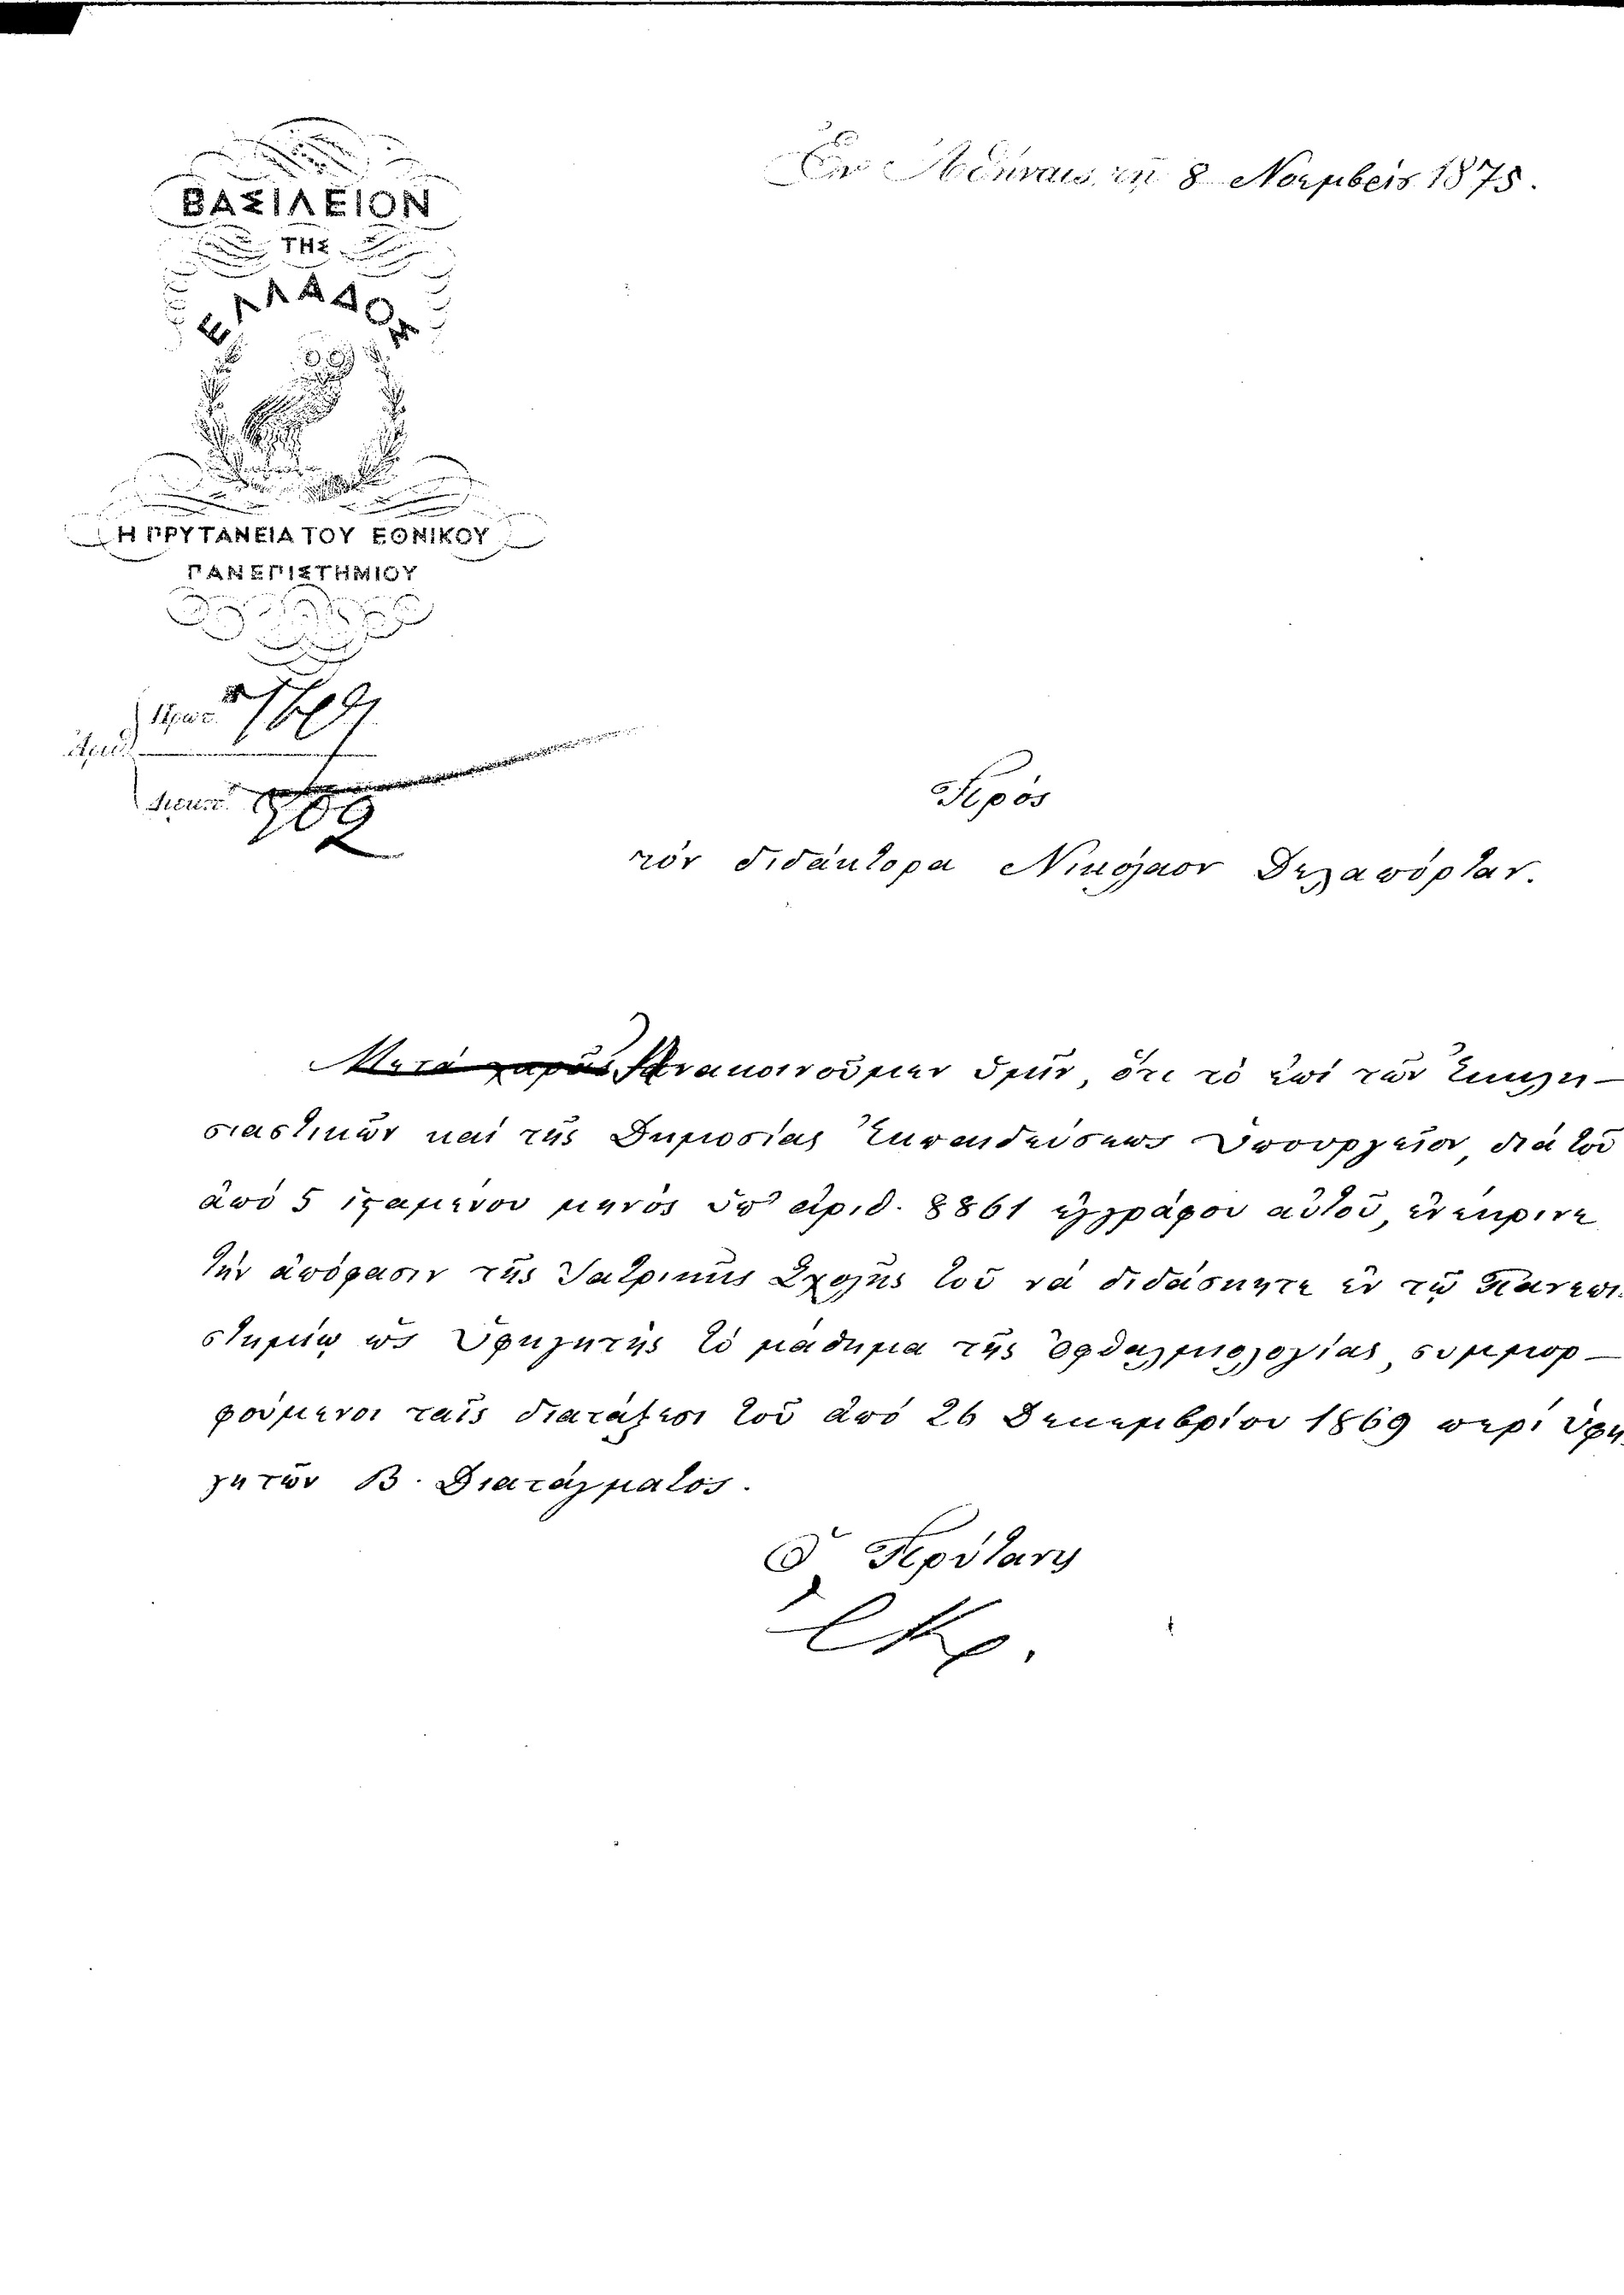 Ἐν Ἀθήναις τῇ 8 Νοεμβρίου 1875.
ΒΑΣΙΛΕΙΟΝ
ΤΗΣ
ΕΛΛΑΔΟΣ
Η ΠΡΥΤΑΝΕΙΑ ΤΟΥ ΕΘΝΙΚΟΥ
ΠΑΝΕΠΙΣΤΗΜΙΟΥ
Πρωτ.
Ἀριθ.
Διεκπ.
Πρός
τόν διδάκτορα Νικόλαον Δελαπόρταν.
Μετά χαρᾶς Ἀνακοινοῦμεν ὑμῖν, ὅτι τό ἐπί τῶν Ἐκκλη-
σιαστικῶν καί τῆς Δημοσίας Ἐκπαιδεύσεως Ὑπουργεῖον, διά τοῦ
ἀπό 5 ἱσταμένου μηνός ὑπ' ἀριθ. 8861 ἐγγράφου αὐτοῦ, ἐνέκρινε
τήν ἀπόφασιν τῆς Ἰατρικῆς Σχολῆς τοῦ νά διδάσκητε ἐν τῷ Πανεπι-
στημίῳ ὡς Ὑφηγητής τό μάθημα τῆς Ὀφθαλμολογίας, συμμορ-
φούμενοι ταῖς διατάξεσι τοῦ ἀπό 26 Δεκεμβρίου 1869 περί ὑφη-
γητῶν Β. Διατάγματος.
Ὁ Πρύτανις